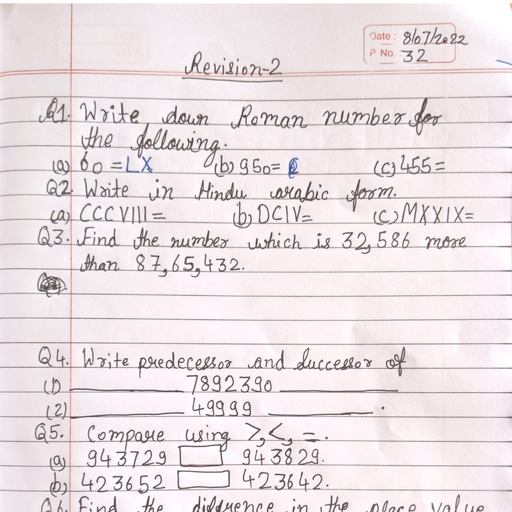 Date: 8/07/2022
P No. 32
Revision-2
Q1. Write down Roman number for
the following.
(a) 60 = LX (b) 950= (c) 455=
Q2. Write in Hindu arabic form.
(a) CCCVIII= (b) DCIV= (c) MXXIX=
Q3. Find the number which is 32,586 more
than 87,65,432.
Q4. Write predecessor and Successor of
(1) ________ 7892390 ________
(2) ________ 49999 ________.
Q5. Compare using >,<, =.
(a) 943729 943829.
(b) 423652 423642.
Q6. Find the difference in the place value